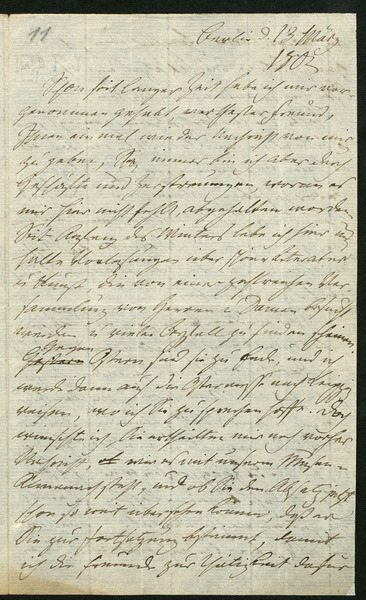 11
Berlin d. 13 März
180
Schon seit langer Zeit habe ich mir vor-
genommen gehabt, werthester Freund,
Ihnen einmal wieder Nachricht von mir
zu geben, immer bin ich aber durch
Geschäfte und Zerstreuungen, woran es
mir hier nicht fehlt, abgehalten worden.
Seit Anfang des Winters lebe ich hier und
halte Vorlesungen über schöne Literatur
u Kunst, die von einer zahlreichen Ver
sammlung von Herren u Damen besucht
werden u vielen Beyfall zu finden scheinen.
Gegen Ostern sind sie zu Ende, und ich
werde dann auf die Ostermesse nach Leipzig
reisen, wo ich Sie zu sprechen hoffe. Doch
wünscht ich, Sie ertheilten mir noch vorher
Nachricht, wie es mit unserm Musen-
Almanach steht, und ob Sie den Absatz jetzt
schon so weit übersehen können, daß er
Sie zur Fortsetzung bestimmt, damit
ich die Freunde zur Thätigkeit dafür